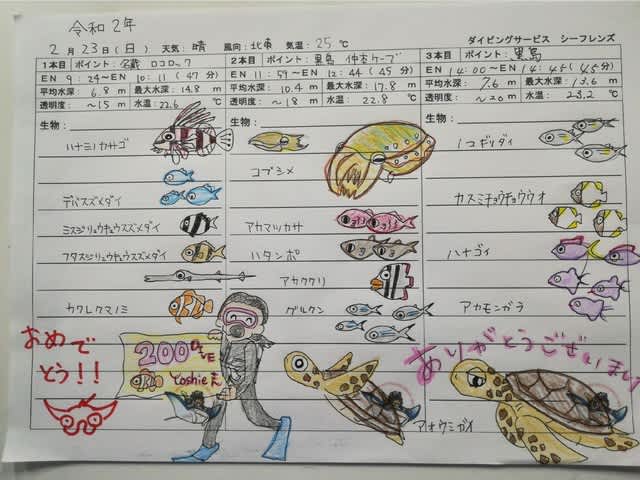 令和 2年
2月 23日(日) 天気:晴 風向:北東 気温:25℃ ダイビングサービス シーフレンズ
1本目 ポイント:名蔵 ロコロック
EN 9:24〜EN 10:11(47分)
平均水深: 6.8 m 最大水深:14.8 m
透明度:〜15 m 水温:22.6 ℃
生物:
ハナミノカサゴ
デバスズメダイ
ミスジリュウキュウスズメダイ
フタスジリュウキュウスズメダイ
カクレクマノミ
2本目 ポイント:黒島 仲本ケーブ
EN 11:59〜EN 12:44(45分)
平均水深: 10.4 m 最大水深:17.8 m
透明度:〜18 m 水温: 22.8 ℃
生物:
コブシメ
アカマツカサ
ハタンポ
アカククリ
グルクン
3本目 ポイント:黒島
EN 14:00〜EN 14:45(45分)
平均水深: 7.6 m 最大水深:13.6 m
透明度:〜20 m 水温: 23.2 ℃
生物:
ノコギリダイ
カスミチョウチョウウオ
ハナゴイ
アカモンガラ
おめで
とう!!
200 DIVE
Yoshieさん
アオウミガメ
ありがとうございました